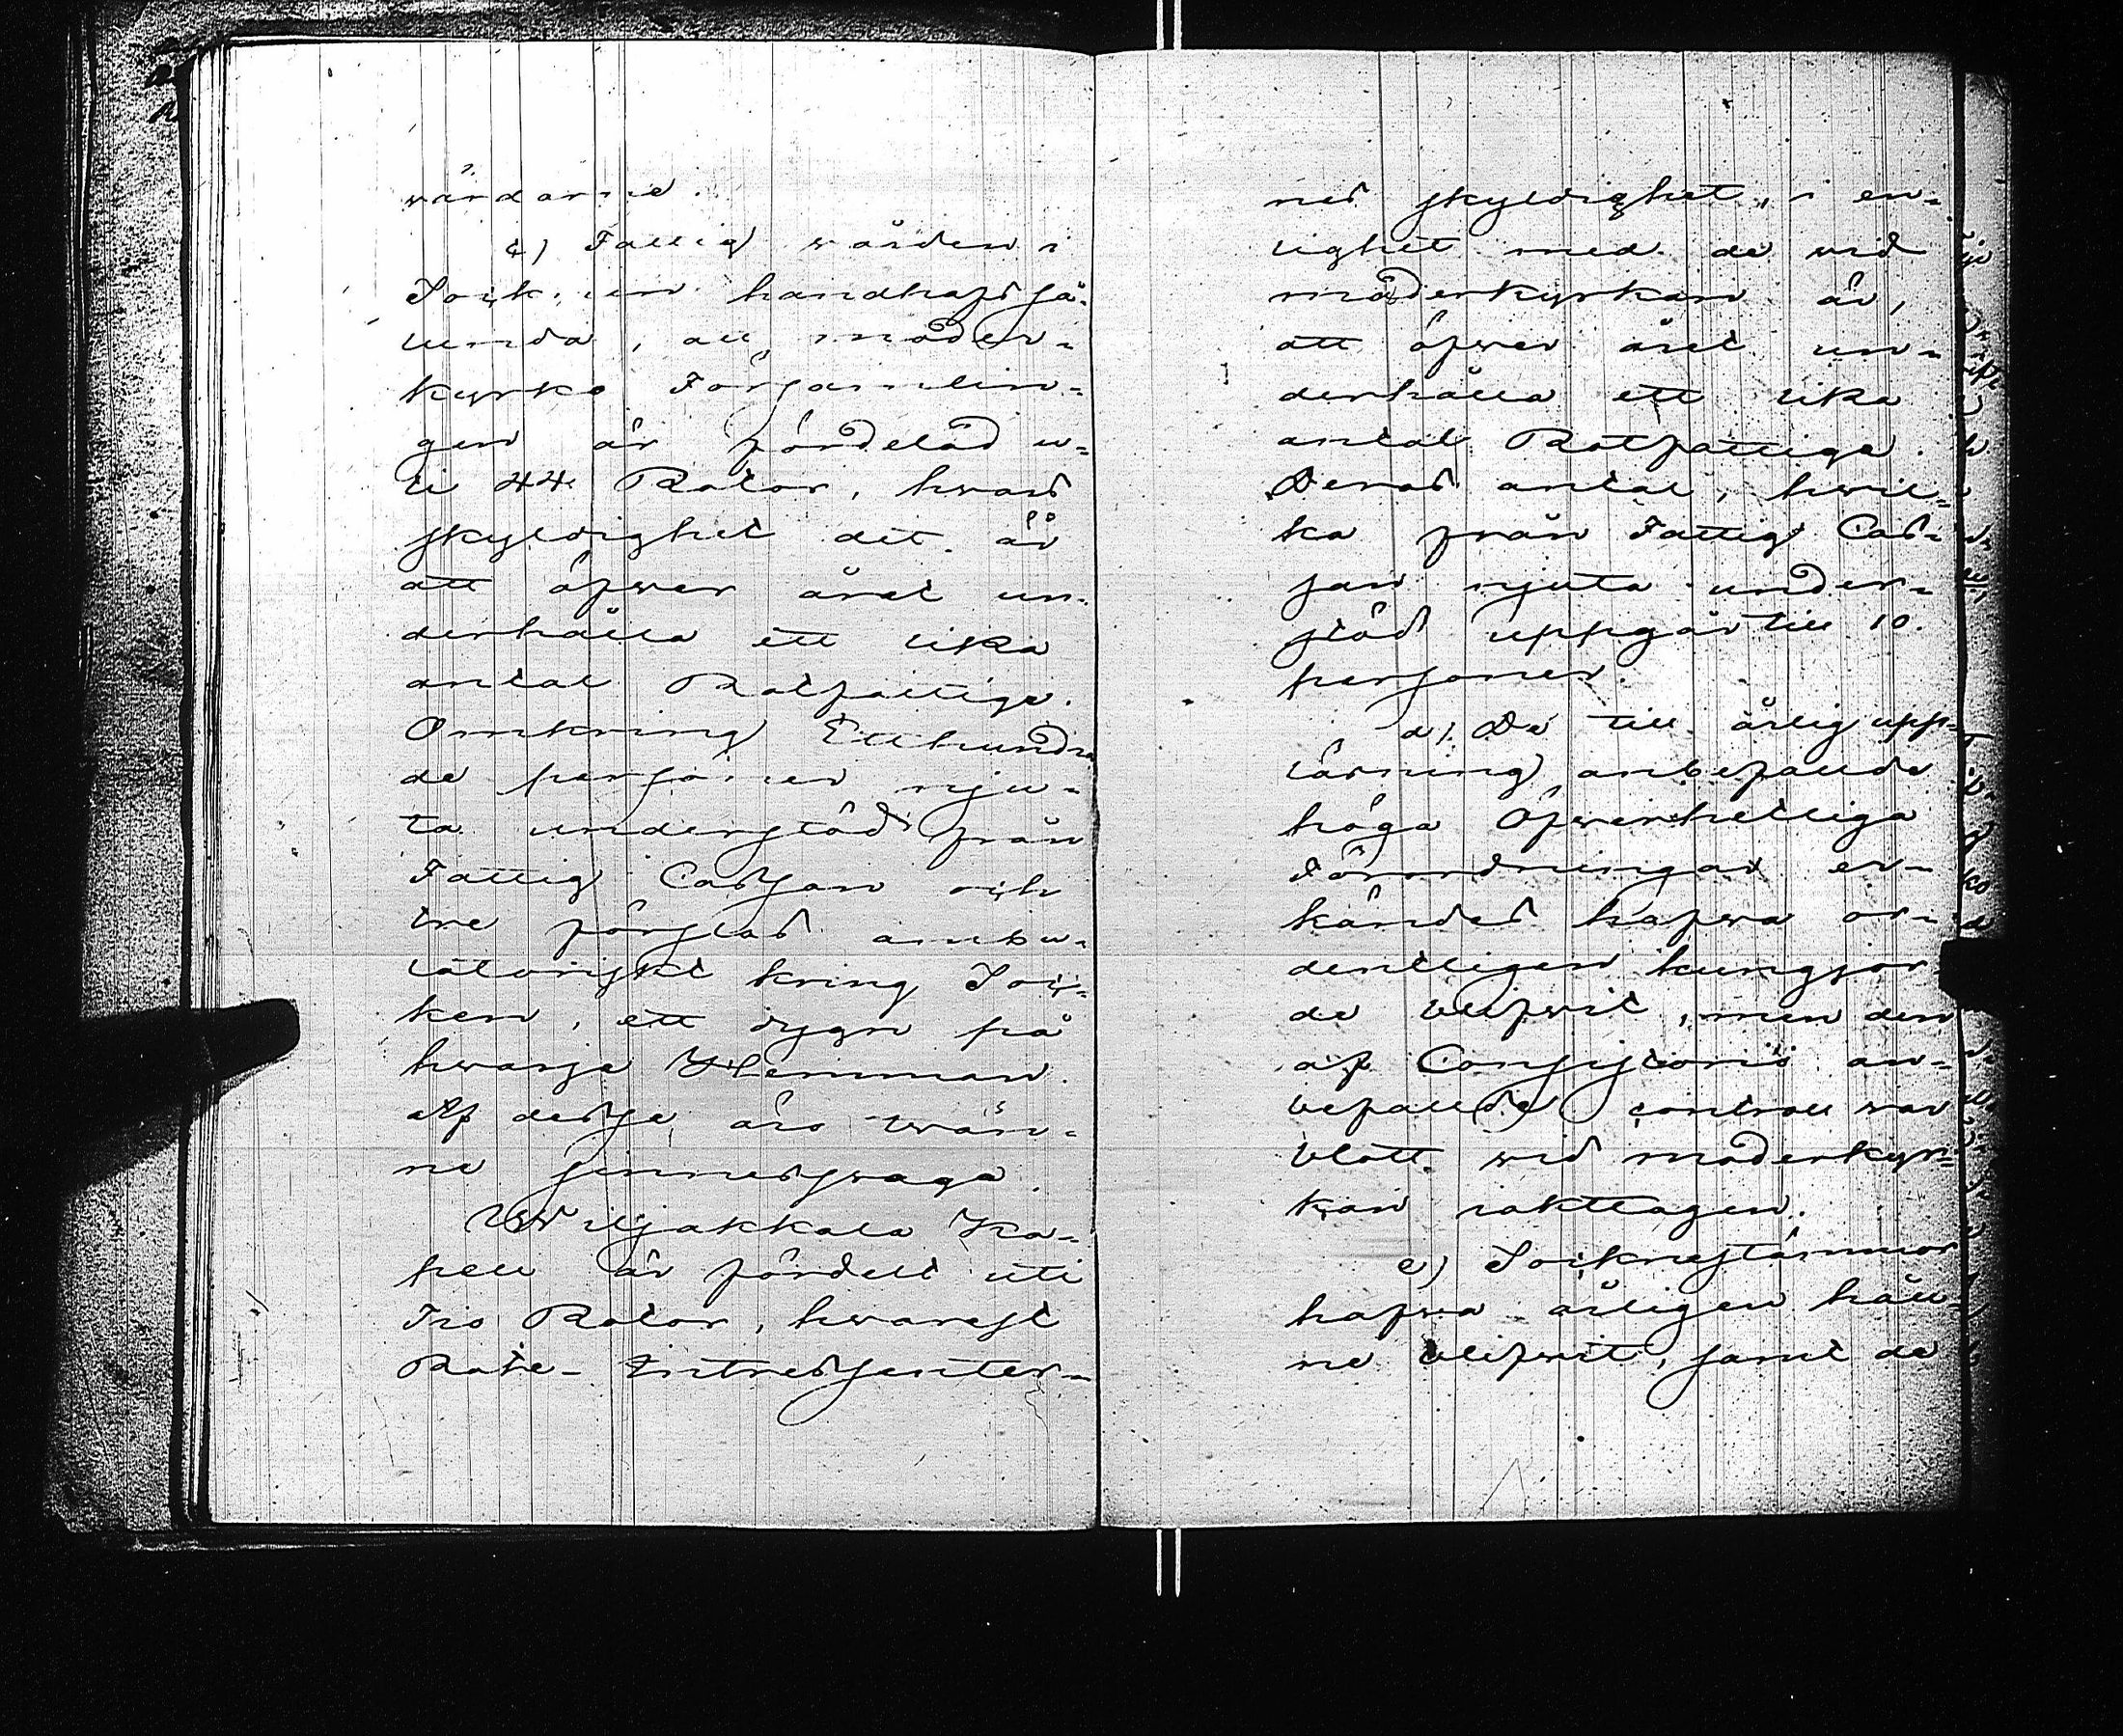 wårdarne.
c) Fattig wården i
Sock̅en handhafs så-
lunda, att moder-
kyrko Församlin-
gen är fördelad u-
ti 44 Rotor, hwars
skyldighet det är
att öfwer året un-
derhålla ett lika
antal Rotfattige.
Omkring Etthundra
de personer nju-
ta understöd från
Fattig Cassan och
tre förslas ambu-
latoriskt kring Soc-
ken, ett dygn på
hwarje Hemman.
Af dessa äro twän-
ne sinnesswaga.
Wiljakkala Ka-
pell är fördelt uti
Tio Rotor, hwarest
Rote-Intressenter-
nes skyldighet, i en-
lighet med de wid
moderkyrkan är,
att öfwer året un-
derhålla ett lika
antal Rotfattige.
Deras antal, hwil-
ka från Fattig Cas-
san njuta under-
stöd uppgår till 10.
personer.
d) De till årlig upp-
läsning anbefallda
höga Öfwerhetliga
Förordningar er-
kändes hafwa or-
dentligen kungjor-
de blifwit, men den
af Consistorio an-
befallde controll war
blott wid moderkyr-
kan iakttagen.
e) Socknestämmor
hafwa årligen håll-
ne blifwit, samt de